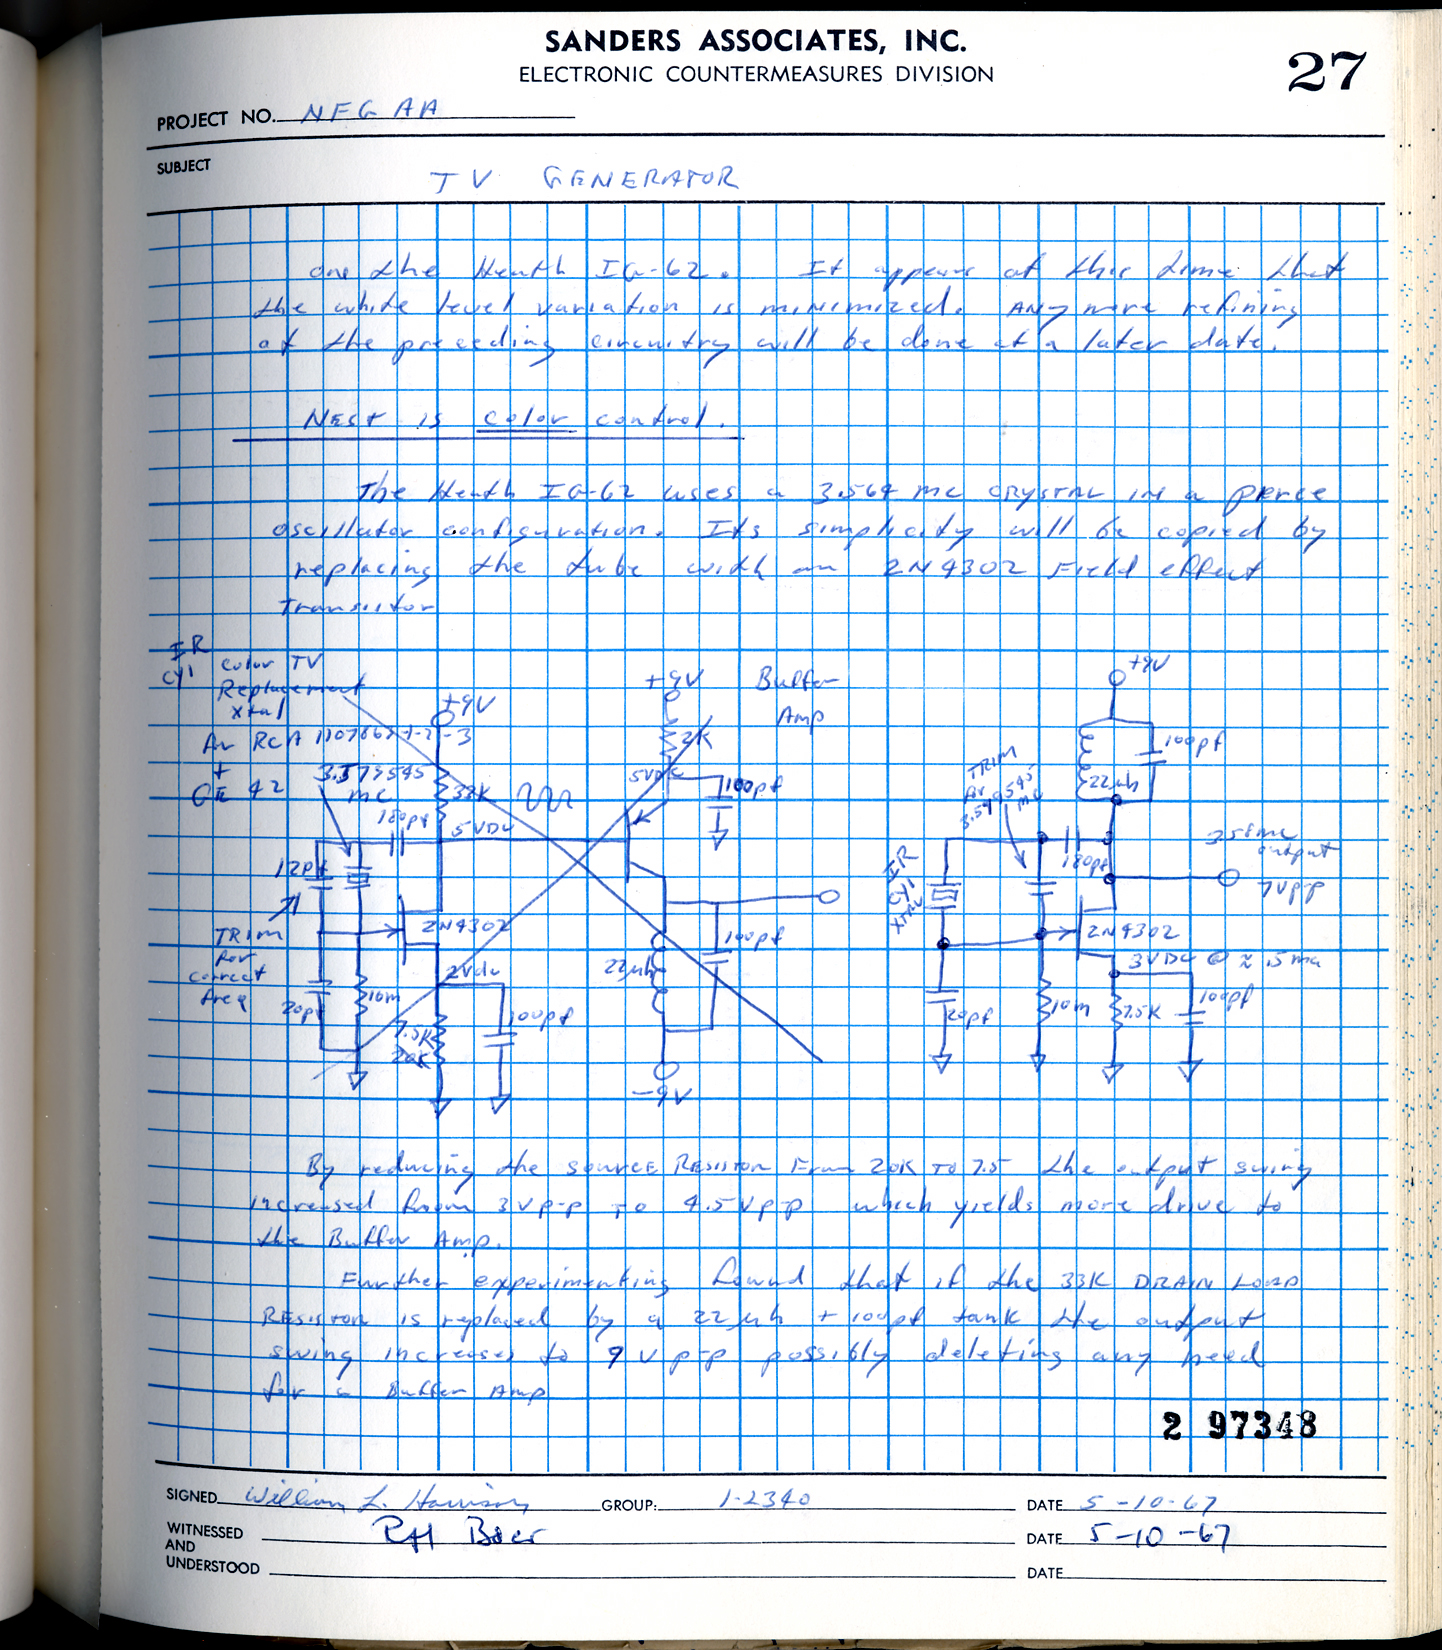 SANDERS ASSOCIATES, INC.
ELECTRONIC COUNTERMEASURES DIVISION
27
PROJECT NO. NFGAA
SUBJECT
TV GENERATOR
one the Heath IG-62. It appears at this time that
the white level variation is minimized. ANy more refining
of the preceeding circuitry will be done at a later date.
NEXt is color control.
The Heath IG-62 uses a 3.569 mc CRYSTAL IN a pierce
oscillator configuration. Its simplicity will be copied by
replacing the tube with an 2N4302 Field effect
Transistor
IR
CY1
Color TV
Replacement
Xtal
Ar RCA 1107862-1-2-3
+
GE 42
3.579545
mc
180pf
+9V
33K
5VDC
12pf
TRIM
for
correct
freq
20pf
10m
2N4302
2Vdc
7.5K
20K
100pf
+9V
2K
5VDC
100pf
Buffer
Amp
100pf
22μh
-9V
+9V
100pf
22μh
TRIM
Ar
3.579545
mc
IR
CY1
XTAL
180pf
3.58mc
output
7Vpp
2N4302
3VDC @ ≈ .5ma
20pf
10m
7.5K
100pf
By reducing the SOURCE RESISTOR From 20K TO 7.5 the output swing
increased from 3Vp-p TO 4.5Vp-p which yields more drive to
the Buffer Amp.
Further experimenting found that if the 33K DRAIN LOAD
RESISTOR is replaced by a 22μh + 100pf tank the output
swing increases to 9 V p-p possibly deleting any need
for a Buffer Amp
2 97348
SIGNED William L. Harrison GROUP: 1-2340 DATE 5-10-67
WITNESSED
AND
UNDERSTOOD
RH Baer DATE 5-10-67
DATE